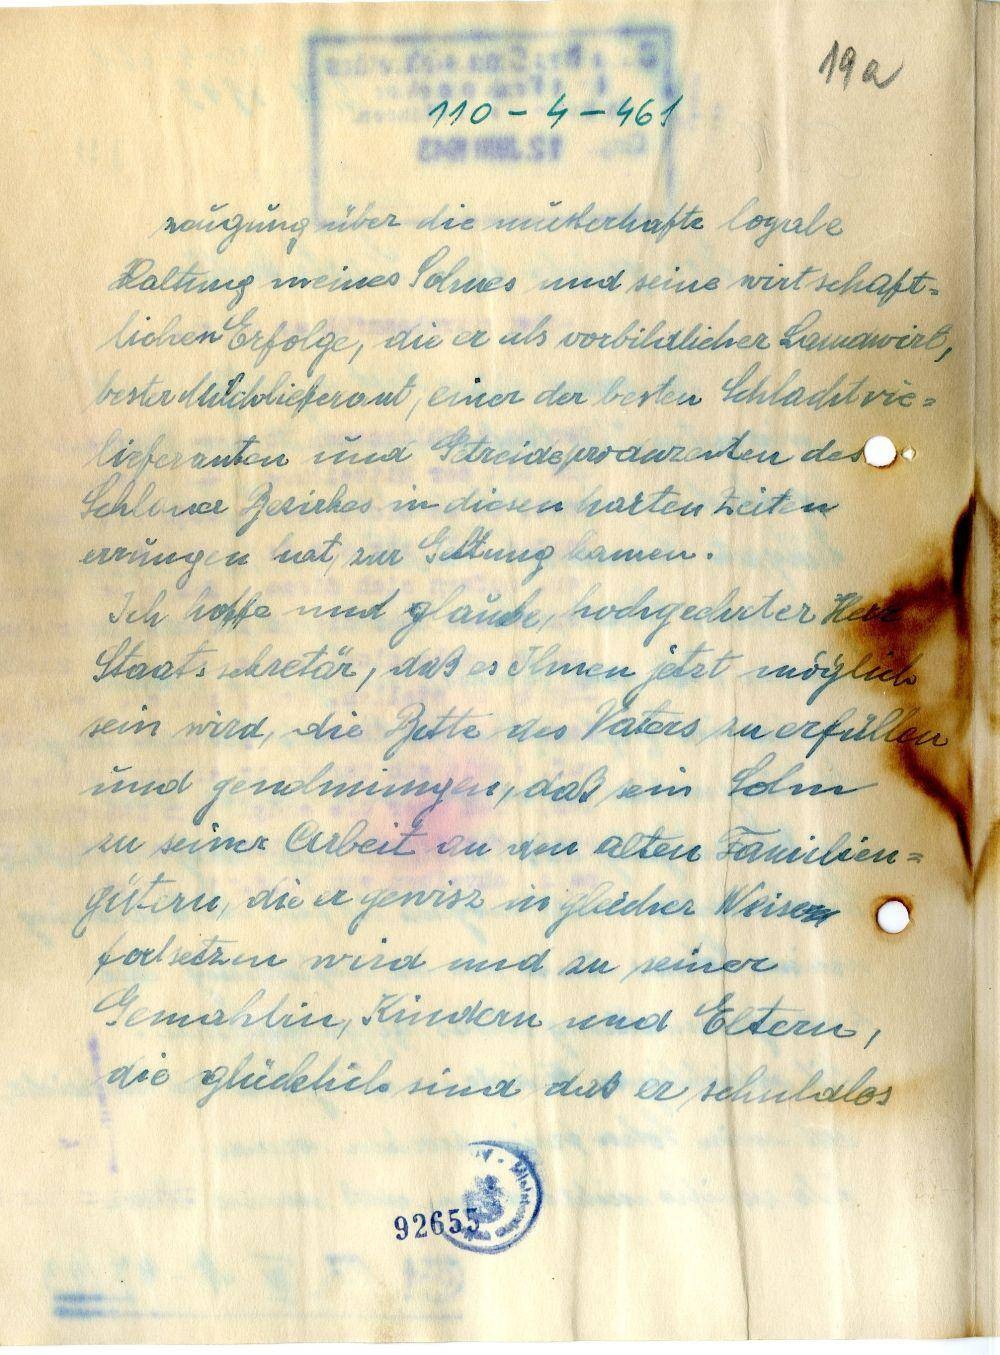 19a
110-4-461
zeugung über die musterhafte loyale
Haltung meines Sohnes und seine wirtschaft=
lichen Erfolge, die er als vorbildlicher Landwirt,
bester Milchlieferant, einer der besten Schlachtvie=
lieferanten und Getreideproduzenten des
Schlaner Bezirkes in diesen harten Zeiten
errungen hat, zur Geltung kamen.
Ich hoffe und glaube, hochgeehrter Herr
Staatssekretär, daß es Ihnen jetzt möglich
sein wird, die Bitte des Vaters zu erfüllen
und genehmingen, daß sein Sohn
zu seiner Arbeit an den alten Familien=
gütern, die er gewisz in gleicher Weise
fortsetzen wird und zu seiner
Gemahlin, Kindern und Eltern,
die glücklich sind das er schuldlos
92655